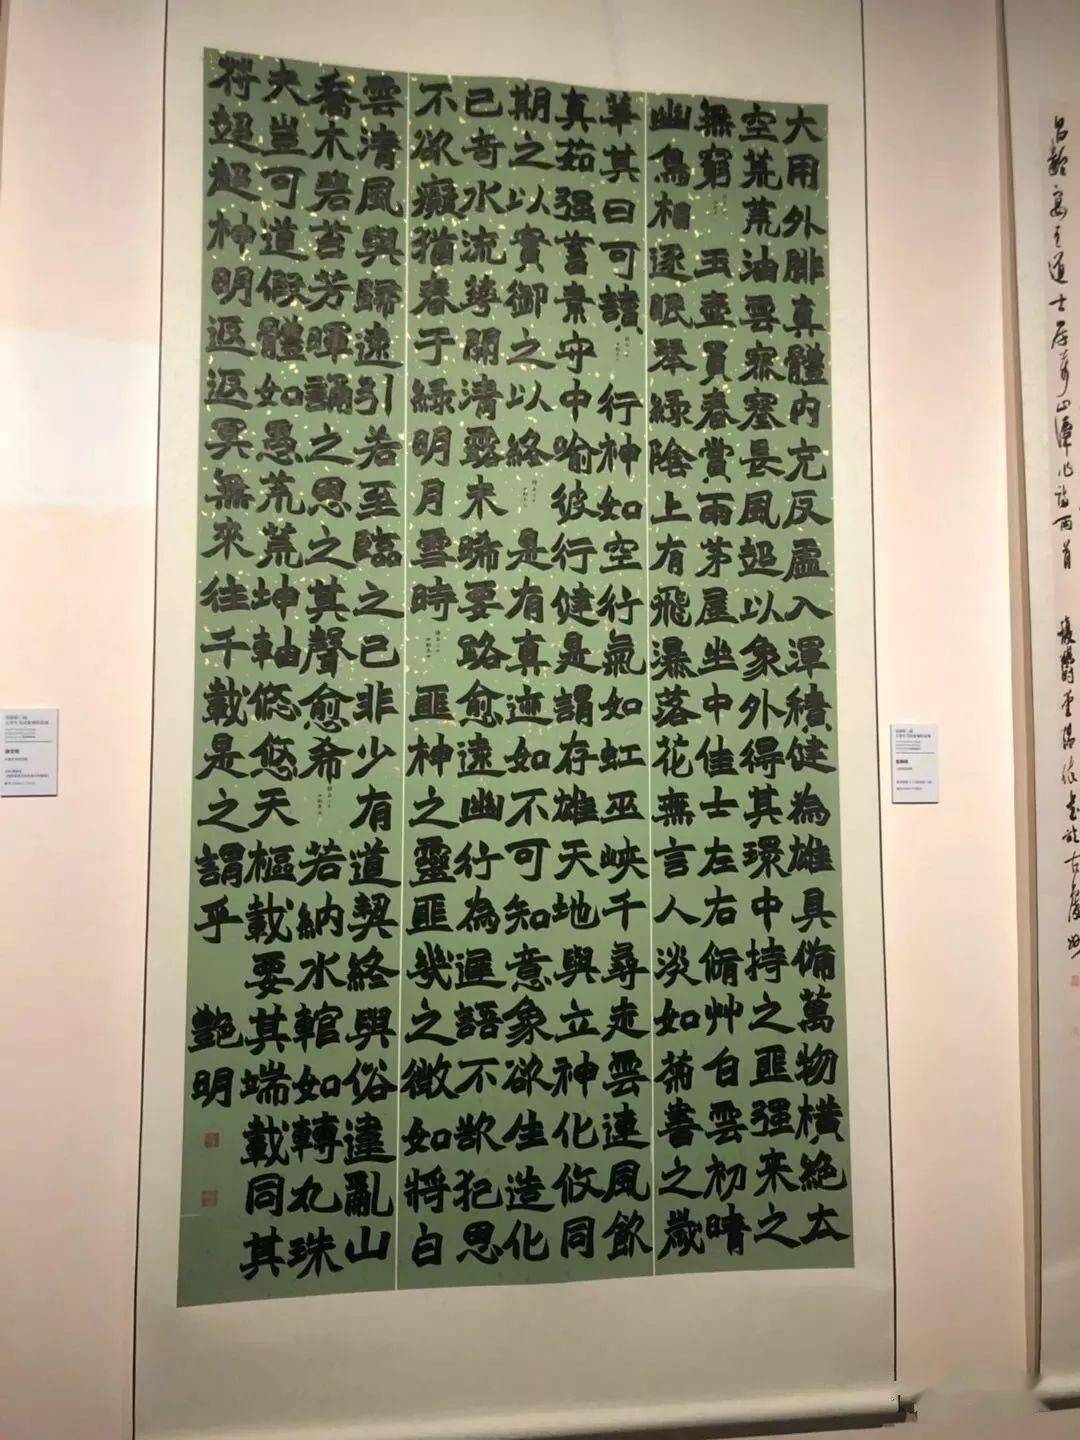 大用外腓真體内充反虛入渾積健為雄具備萬物橫絕太
空荒荒油雲寥寥長風超以象外得其環中持之匪强来之
無窮 玉壺買春賞雨茅屋坐中佳士左右脩竹白雲初晴
幽鳥相逐眠琴綠陰上有飛瀑落花無言人淡如菊書之歲
華其曰可讀 行神如空行氣如虹巫峽千尋走雲連風飲
真茹强蓄素守中喻彼行健是謂存雄天地與立神化攸同
期之以實御之以終 是有真迹如不可知意象欲生造化
已奇水流華開清露未晞要路愈遠幽行為遲語不欲犯思
不欲癡猶春于綠明月雪時 匪神之靈匪幾之微如將白
雲清風與歸遠引若至臨之已非少有道契終與俗違亂山
喬木碧苔芳暉誦之思之其聲愈希 若納水輨如轉丸珠
夫豈可道假體如愚荒荒坤軸悠悠天樞載要其端載同其
符超超神明返返冥無來往千載是之謂乎 艷明